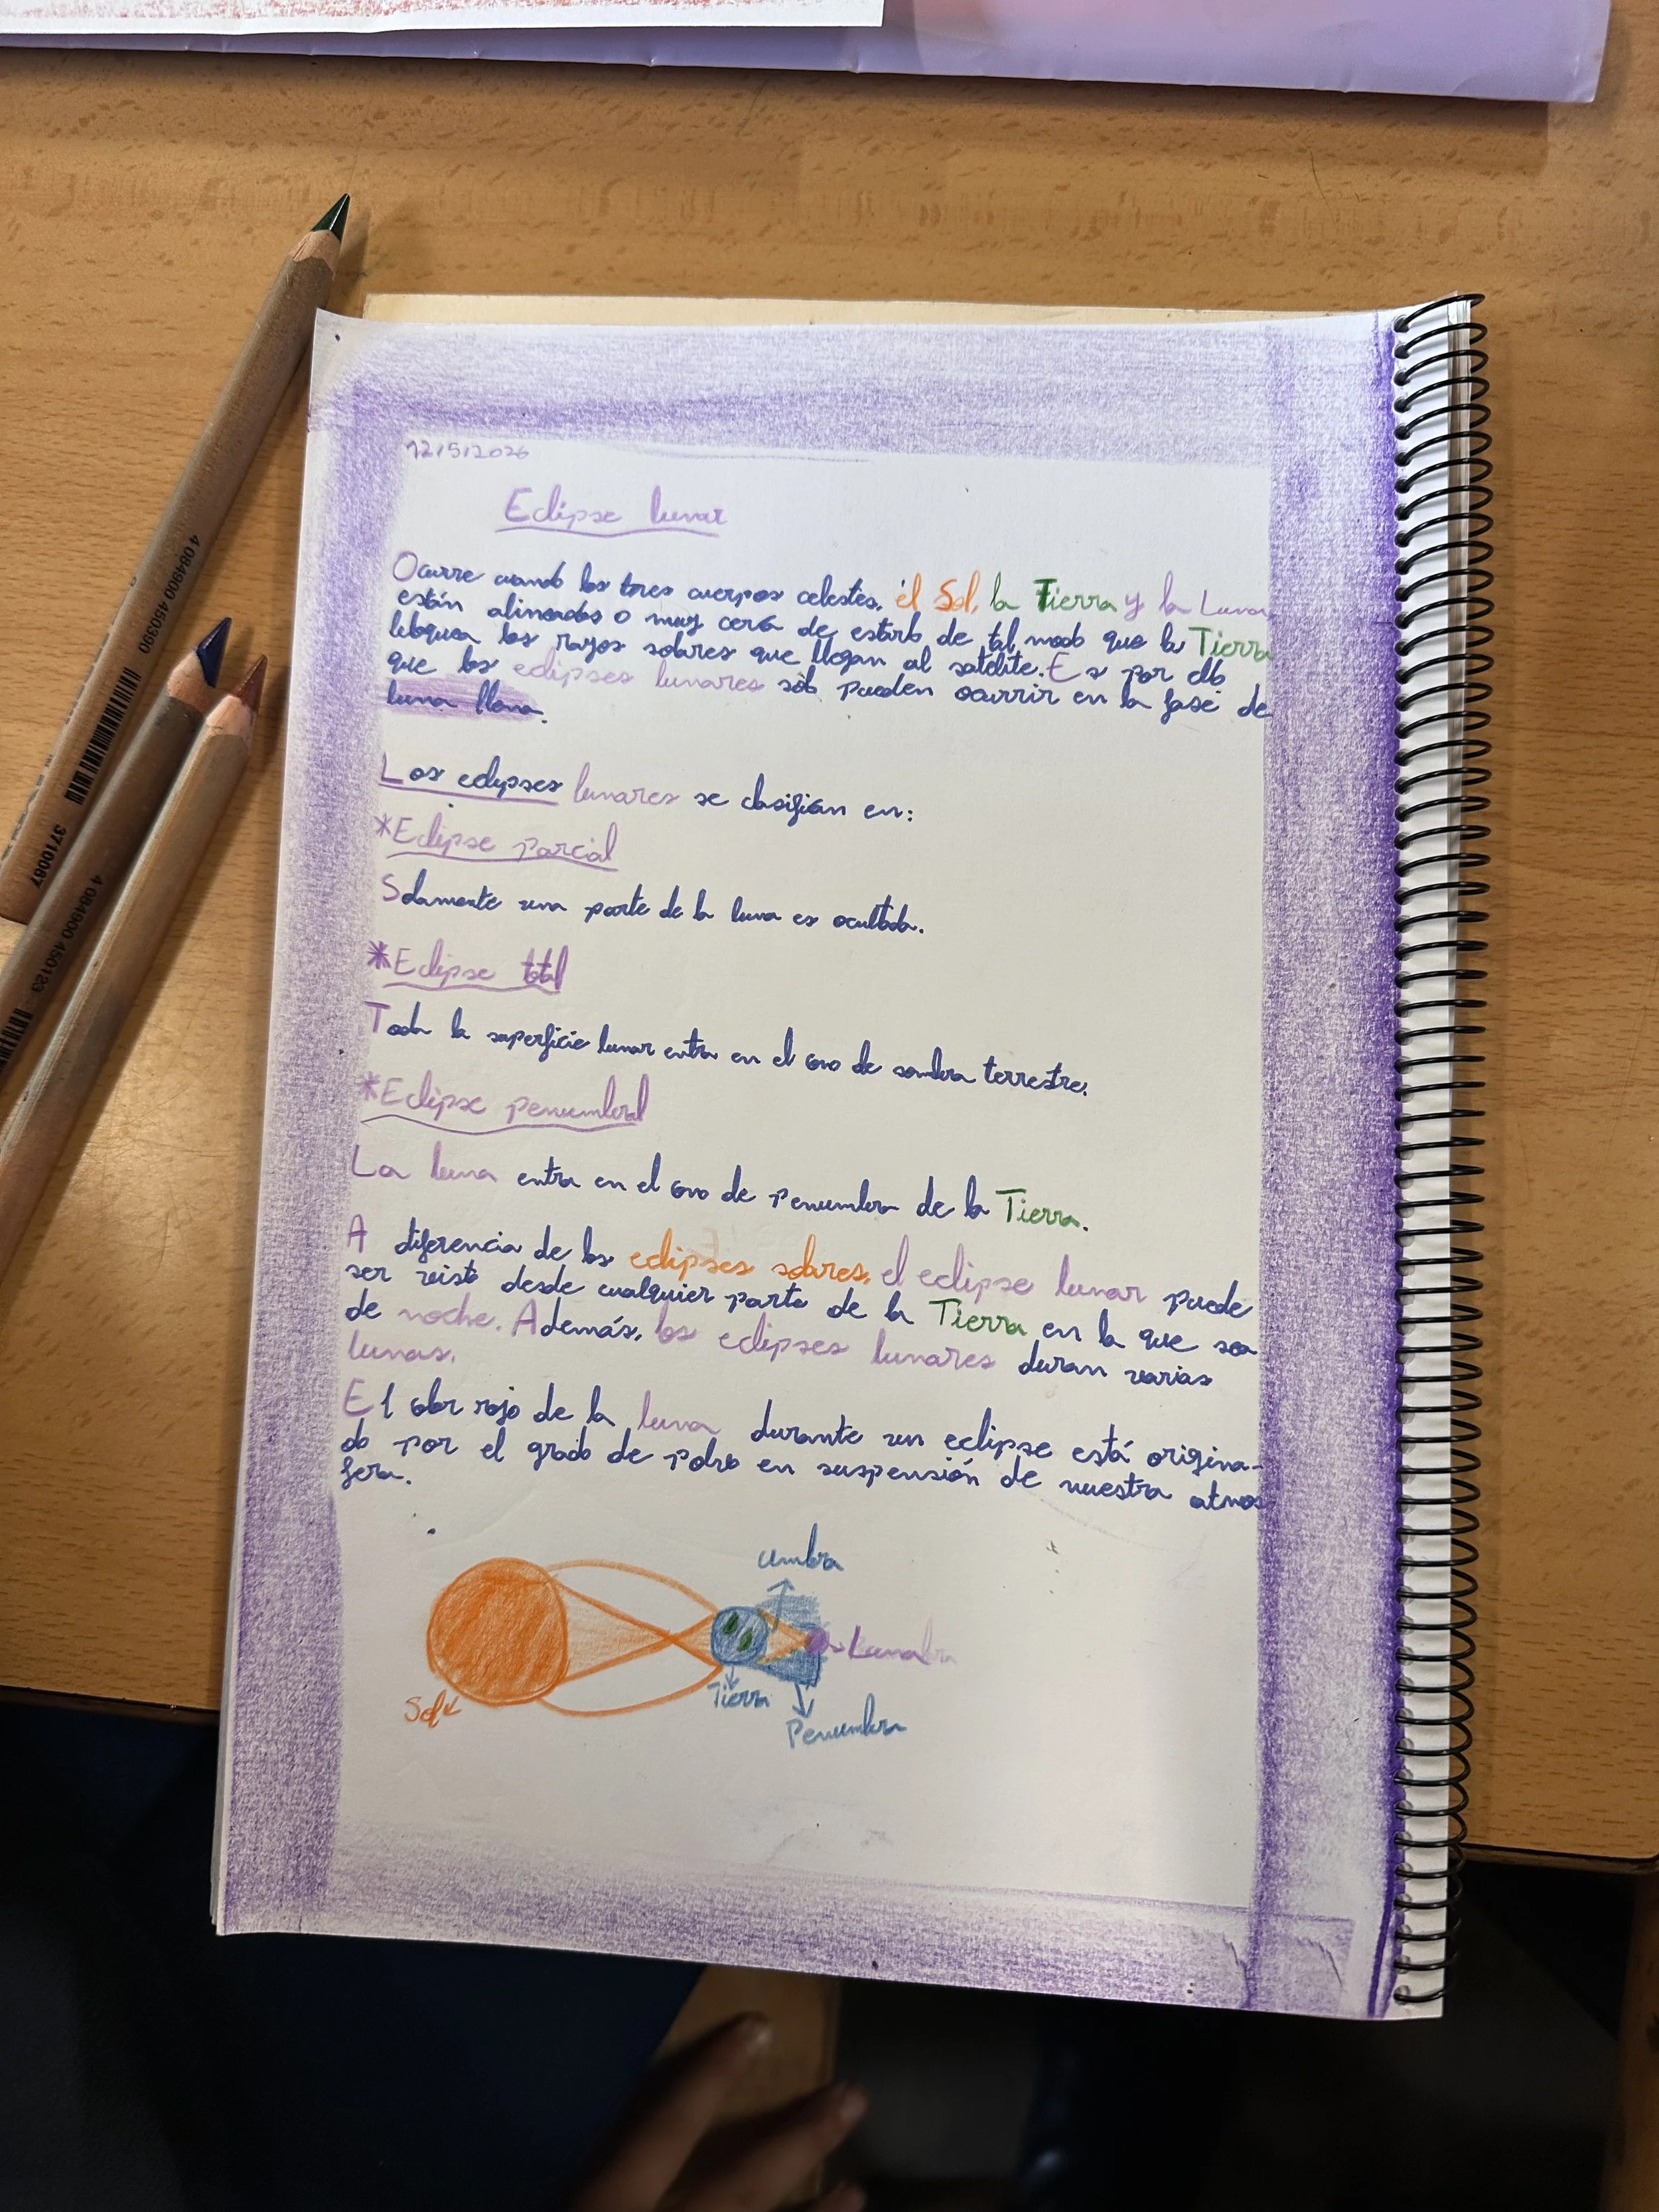 12/5/2026
Eclipse lunar
Ocurre cuando los tres cuerpos celestes, el Sol, la Tierra y la Luna
están alineados o muy cerca de estarlo de tal modo que la Tierra
bloquea los rayos solares que llegan al satélite. Es por ello
que los eclipses lunares sólo pueden ocurrir en la fase de
luna llena.
Los eclipses lunares se clasifican en:
*Eclipse parcial
Solamente una parte de la luna es ocultada.
*Eclipse total
Toda la superficie lunar entra en el cono de sombra terrestre.
*Eclipse penumbral
La luna entra en el cono de penumbra de la Tierra.
A diferencia de los eclipses solares, el eclipse lunar puede
ser visto desde cualquier parte de la Tierra en la que sea
de noche. Además, los eclipses lunares duran varias
lunas.
El color rojo de la luna durante un eclipse está origina-
do por el grado de polvo en suspensión de nuestra atmos
fera.
umbra
Luna
Sol
Tierra
Penumbra
4 084900 450390
3710067
4 084900 450123